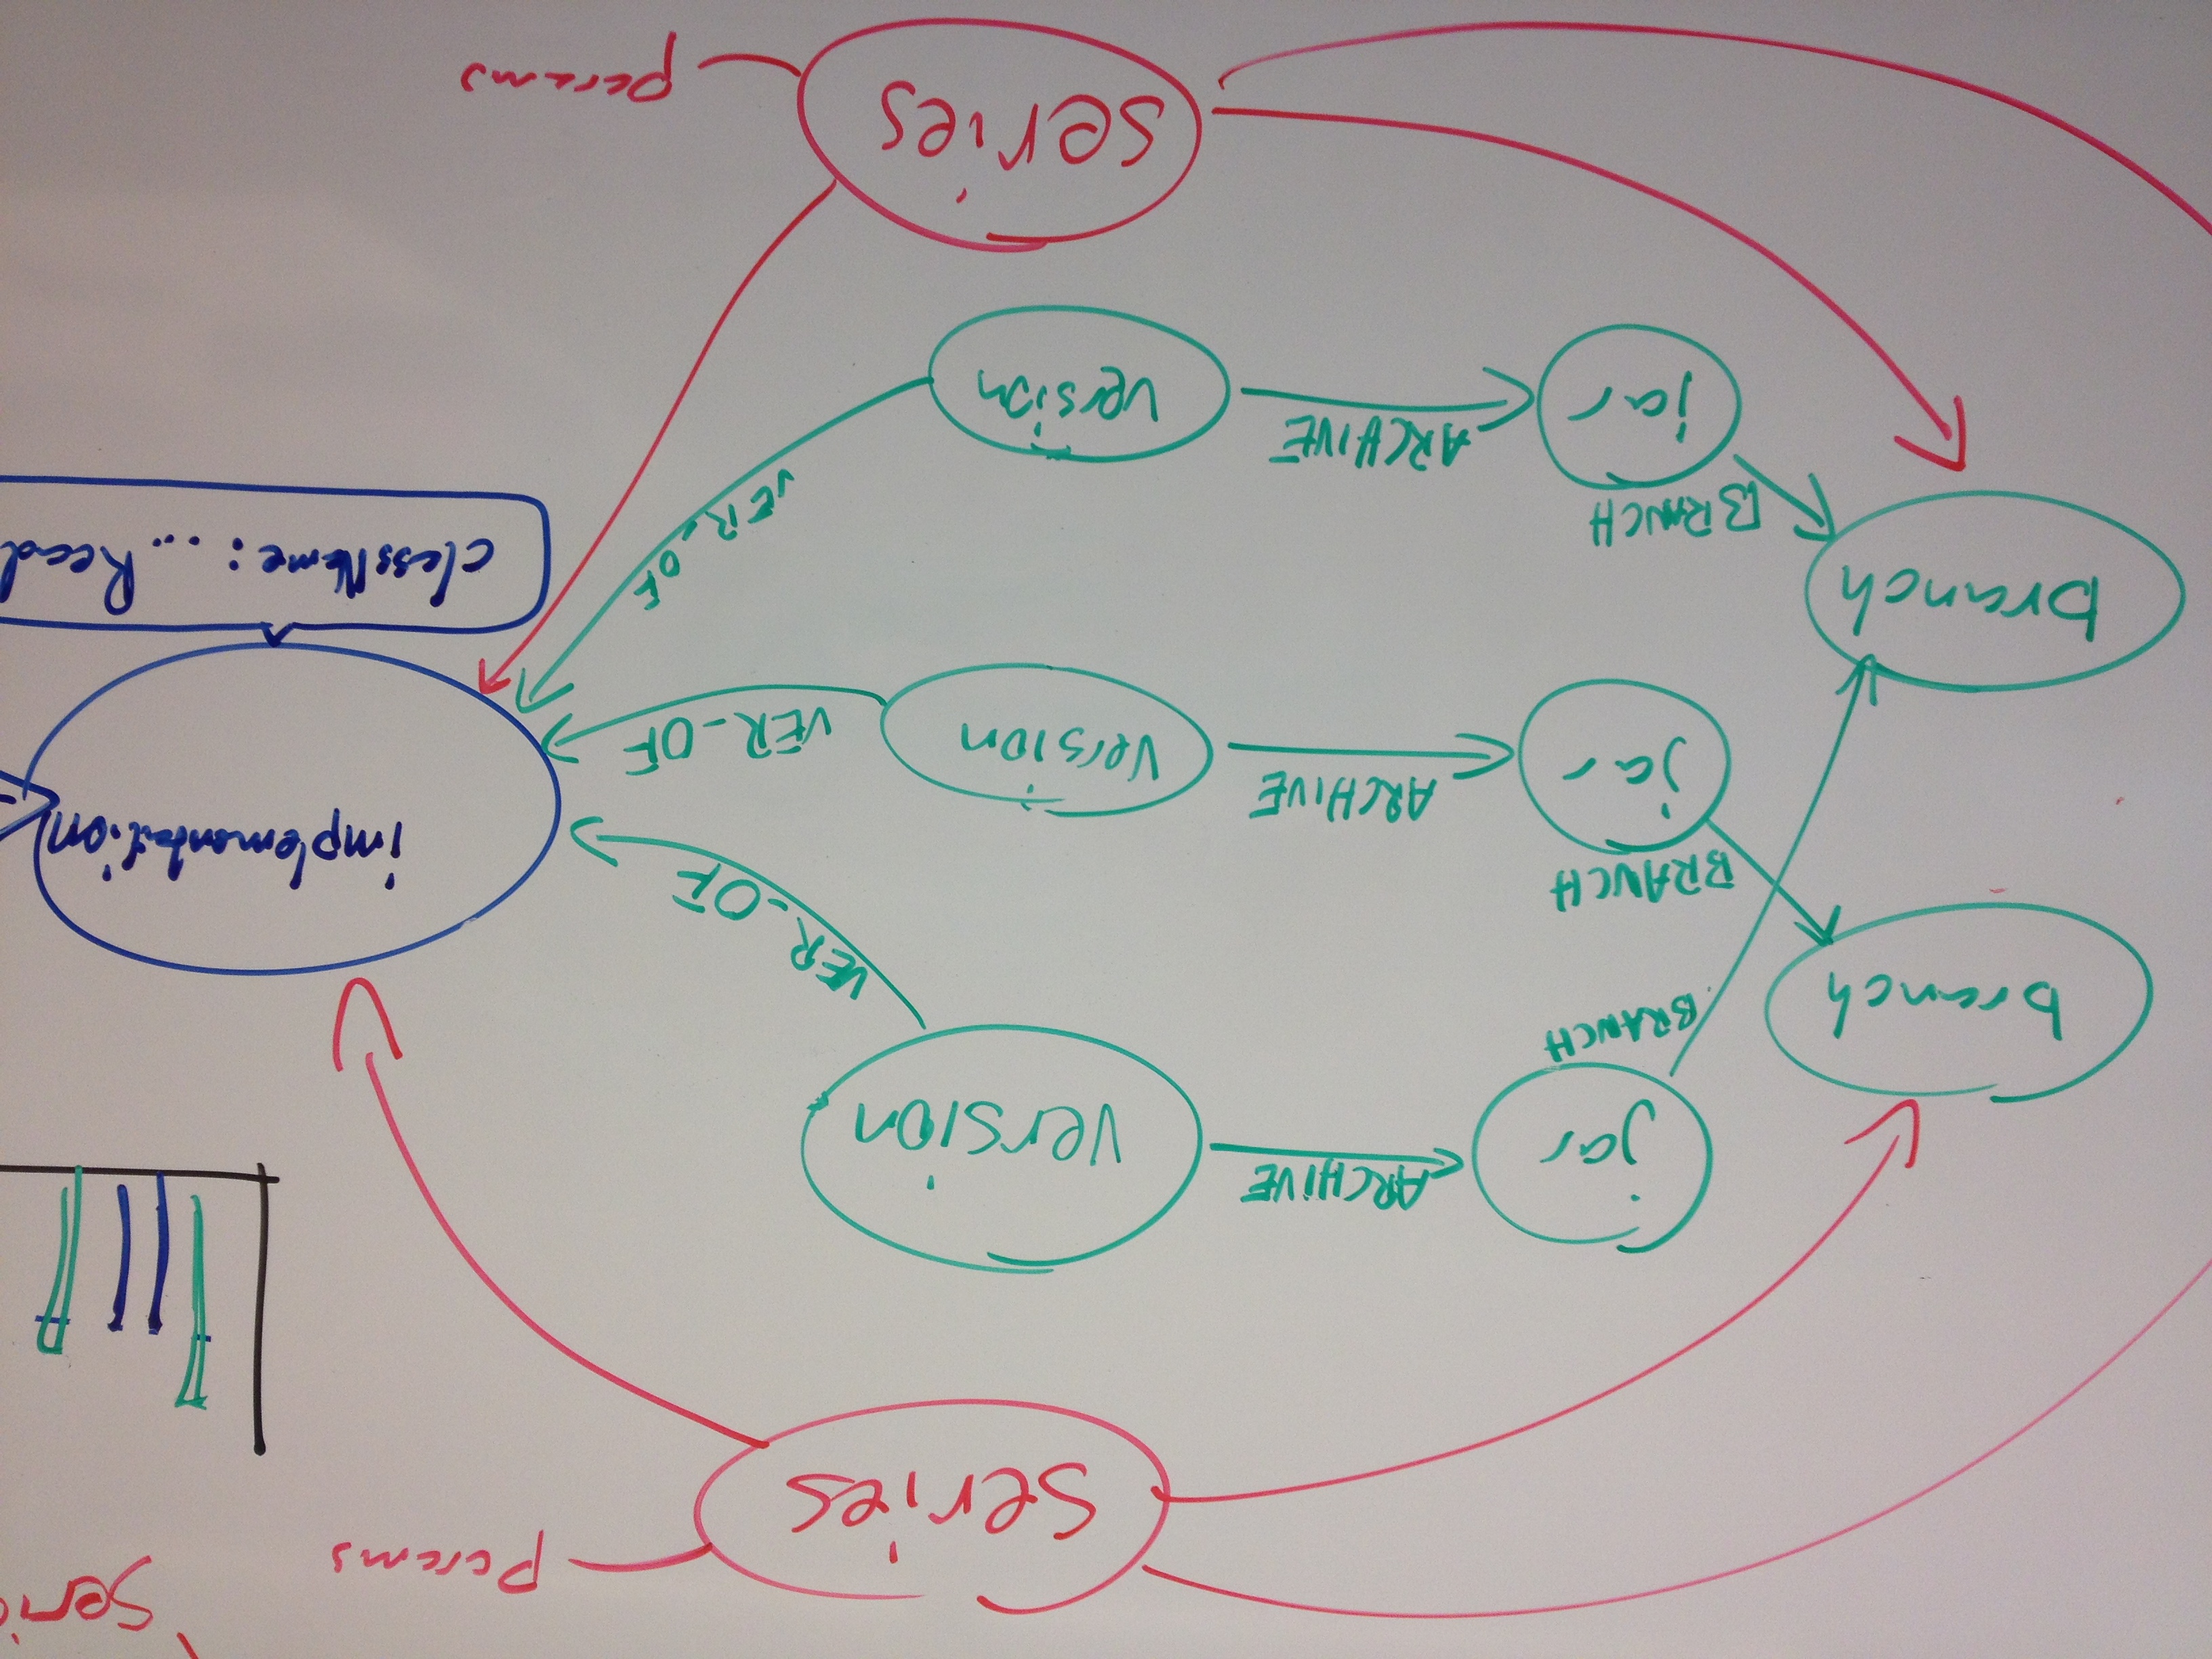 series
params
jar
ARCHIVE
version
BRANCH
branch
VER_OF
BRANCH
implementation
jar
ARCHIVE
version
VER_OF
branch
className: ...Read
BRANCH
VER_OF
jar
ARCHIVE
version
series
params